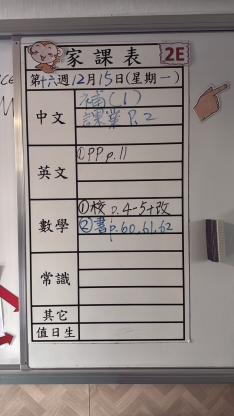 家課表 2E
第十六週12月15日(星期一)
中文
補(1)
課業 P.2
英文
①PP p.11
數學
①校 p.4-5+改
②書p.60,61,62
常識
其它
值日生